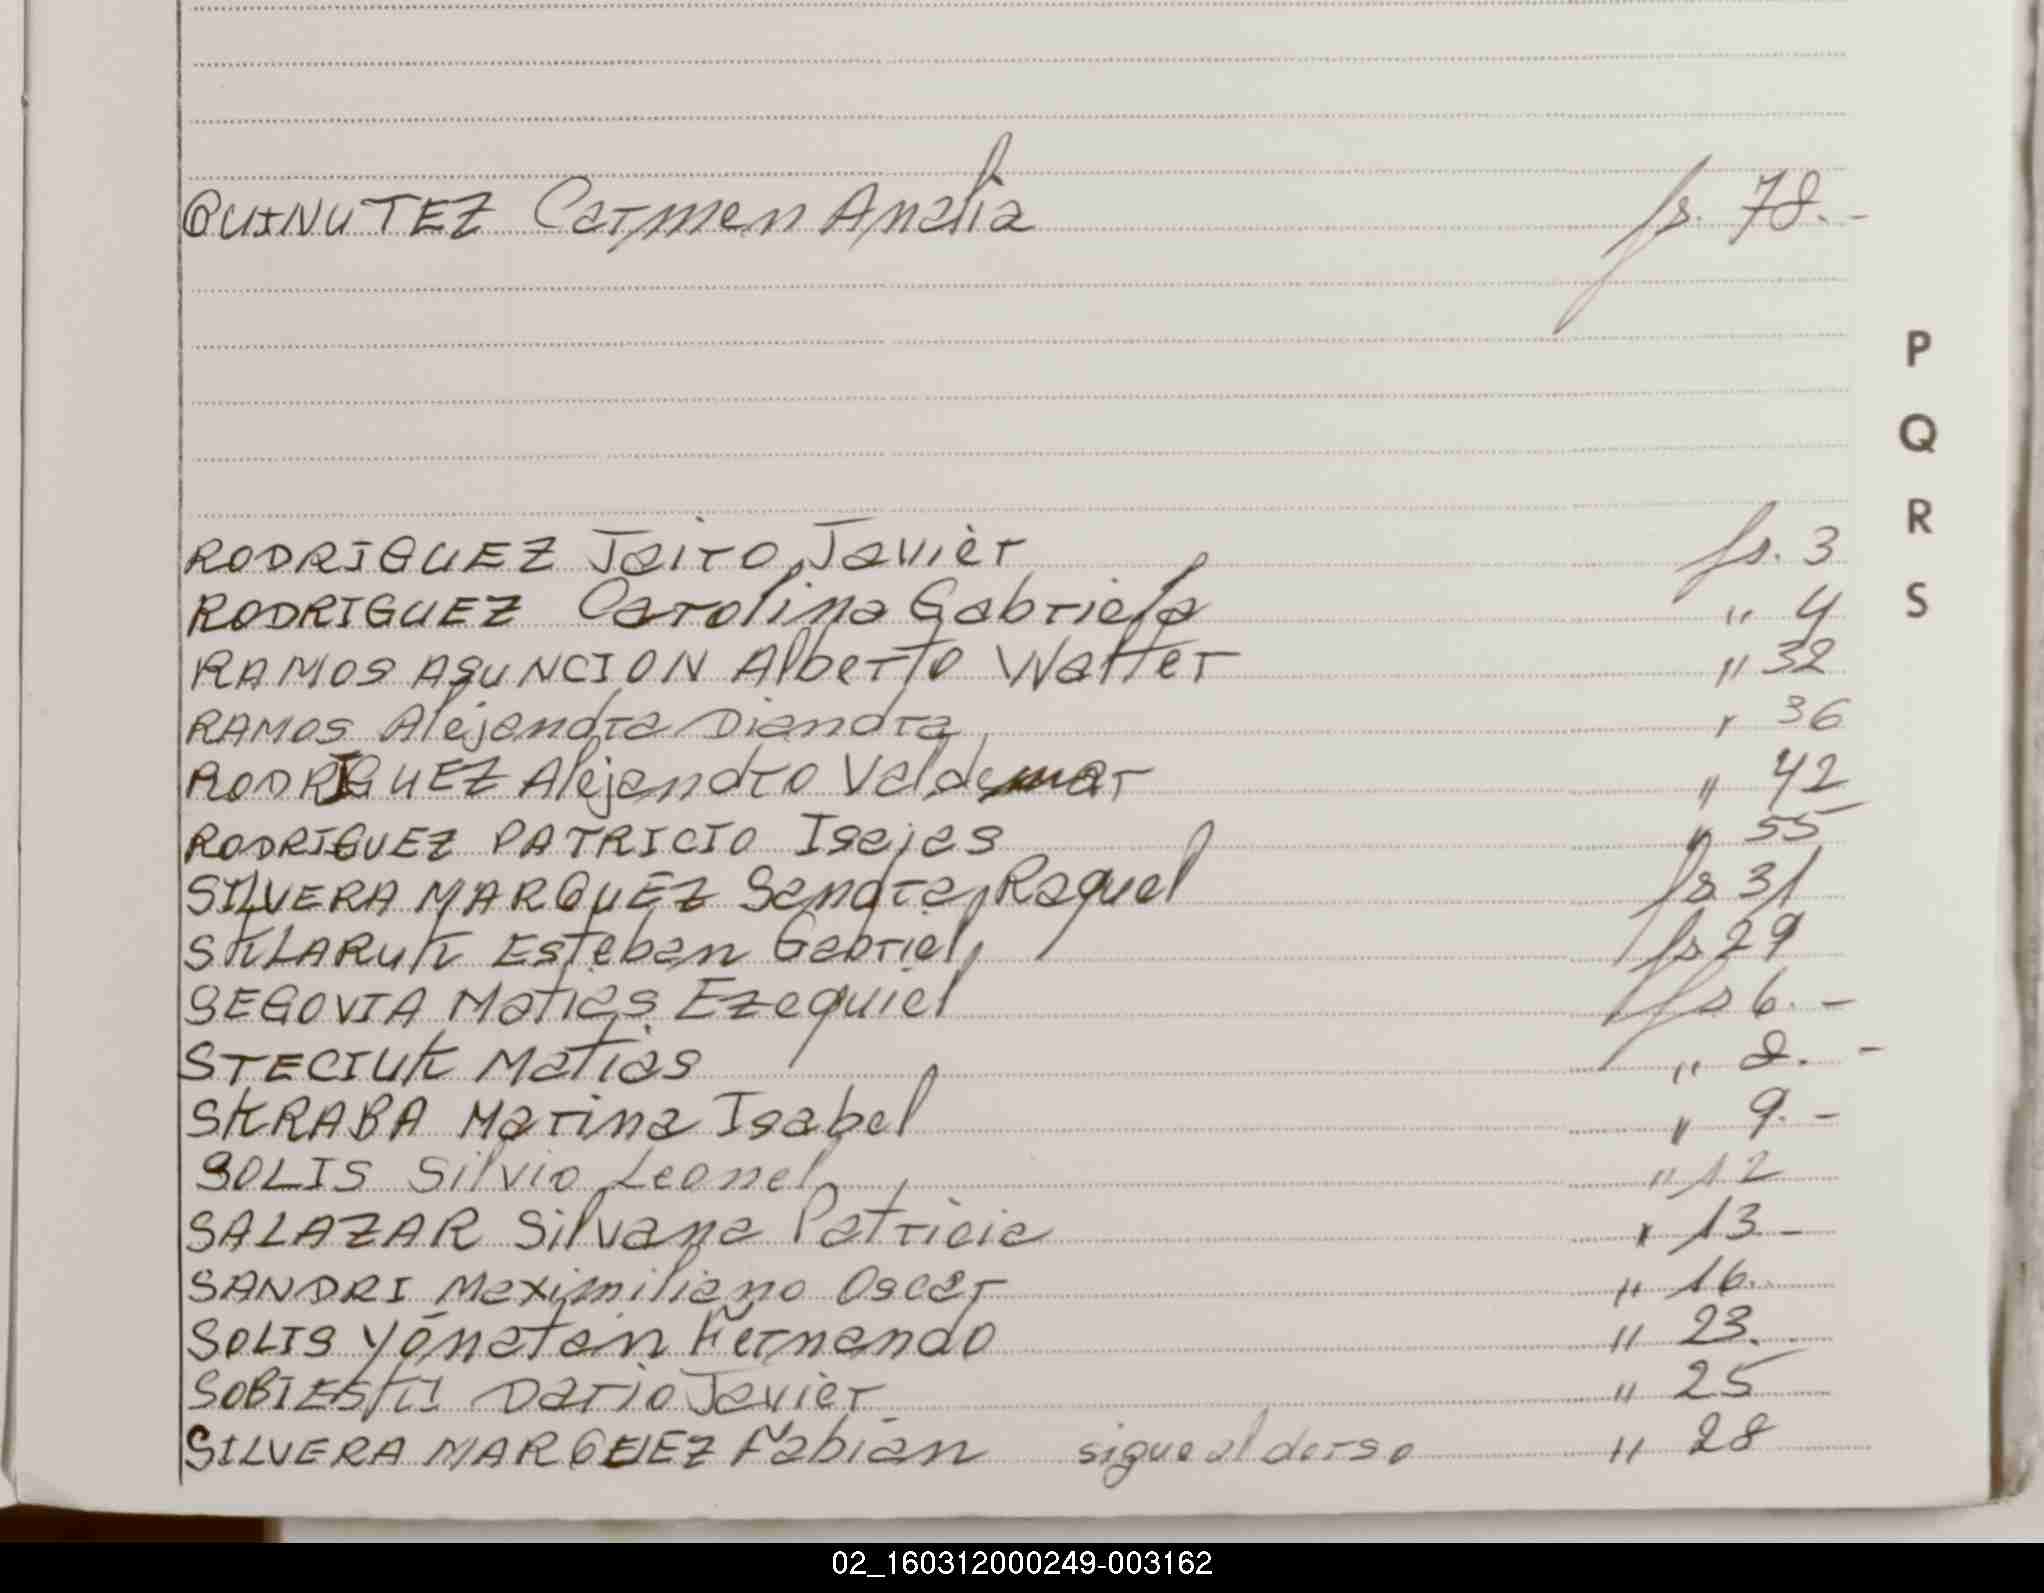 QUINUTEZ Carmen Analia fs. 78.-
P
Q
R
S
RODRIGUEZ Jairo Javier fs. 3
RODRIGUEZ Carolina Gabriela " 4
RAMOS ASUNCION Alberto Walter " 32
RAMOS Alejandra Diandra " 36
RODRIGUEZ Alejandro Valdemar " 42
RODRIGUEZ PATRICIO Isajas " 55
SILVERA MARQUEZ Sandra Raquel fs 31
SKLARUK Esteban Gabriel fs 29
SEGOVIA Matias Ezequiel fs 6.-
STECIUK Matias " 8.-
SKRABA Marina Isabel " 9.-
SOLIS Silvio Leonel " 12
SALAZAR Silvana Patricia " 13-
SANDRI Maximiliano Oscar " 16.
SOLIS Yónatan Fernando " 23.
SOBIESKI Dario Javier " 25
SILVERA MARQUEZ Fabian sigue al dorso " 28
02_160312000249-003162